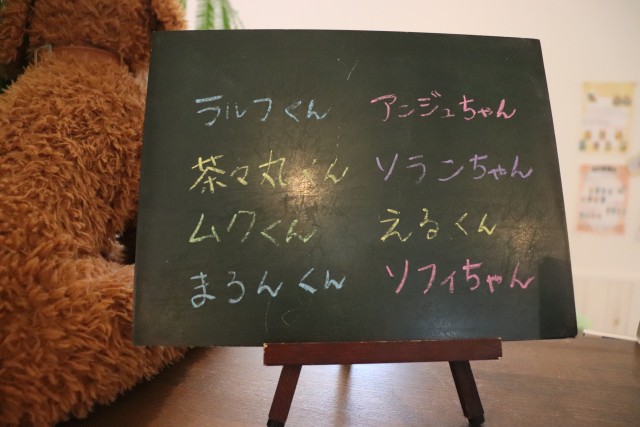 ラルフくん アンジュちゃん
茶々丸くん ソランちゃん
ムクくん えるくん
まろんくん ソフィちゃん